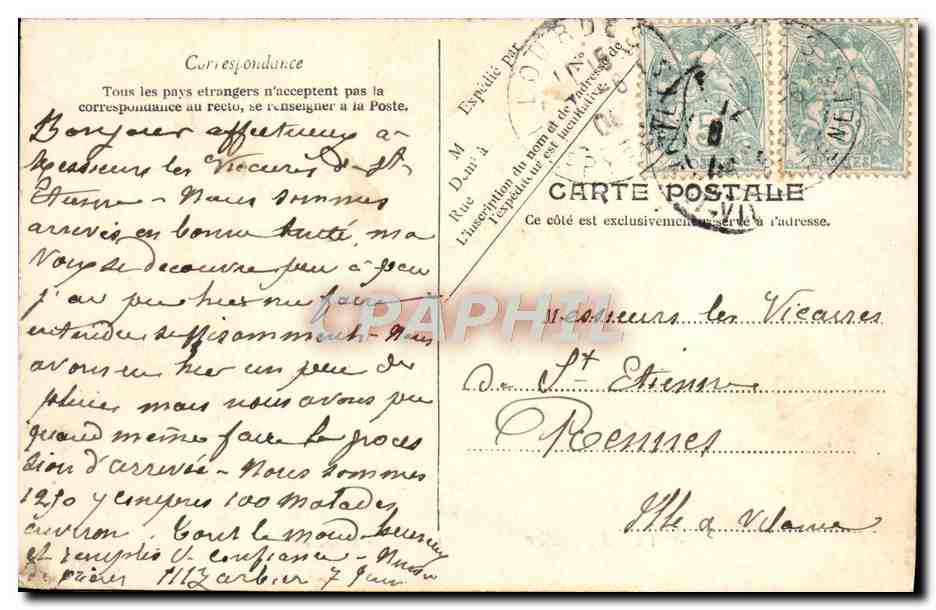 Correspondance
Tous les pays etrangers n'acceptent pas la
correspondance au recto, se renseigner à la Poste.
Bonjour affectueux a
Messieurs les Vicaires de St
Etienne - Nous sommes
arrivés en bonne santé, ma
voix se découvre peu à peu
j'ai pu hier me faire
entendre suffisamment - Nous
avons eu hier un peu de
pluie, mais nous avons pu
quand même faire la proces
sion d'arrivée - Nous sommes
1250 y compris 100 malades
environ. Tout le monde heureux
et remplis de confiance -
prières 7 Juin
Expédié par
M
Demt à
Rue No
L'inscription du nom et de l'adresse de
l'expéditeur est facultative.
LOURDES
CARTE POSTALE
Ce côté est exclusivement réservé à l'adresse.
Messieurs les Vicaires
de St Etienne
Rennes
Ille & Vilaine
CPAPHIL